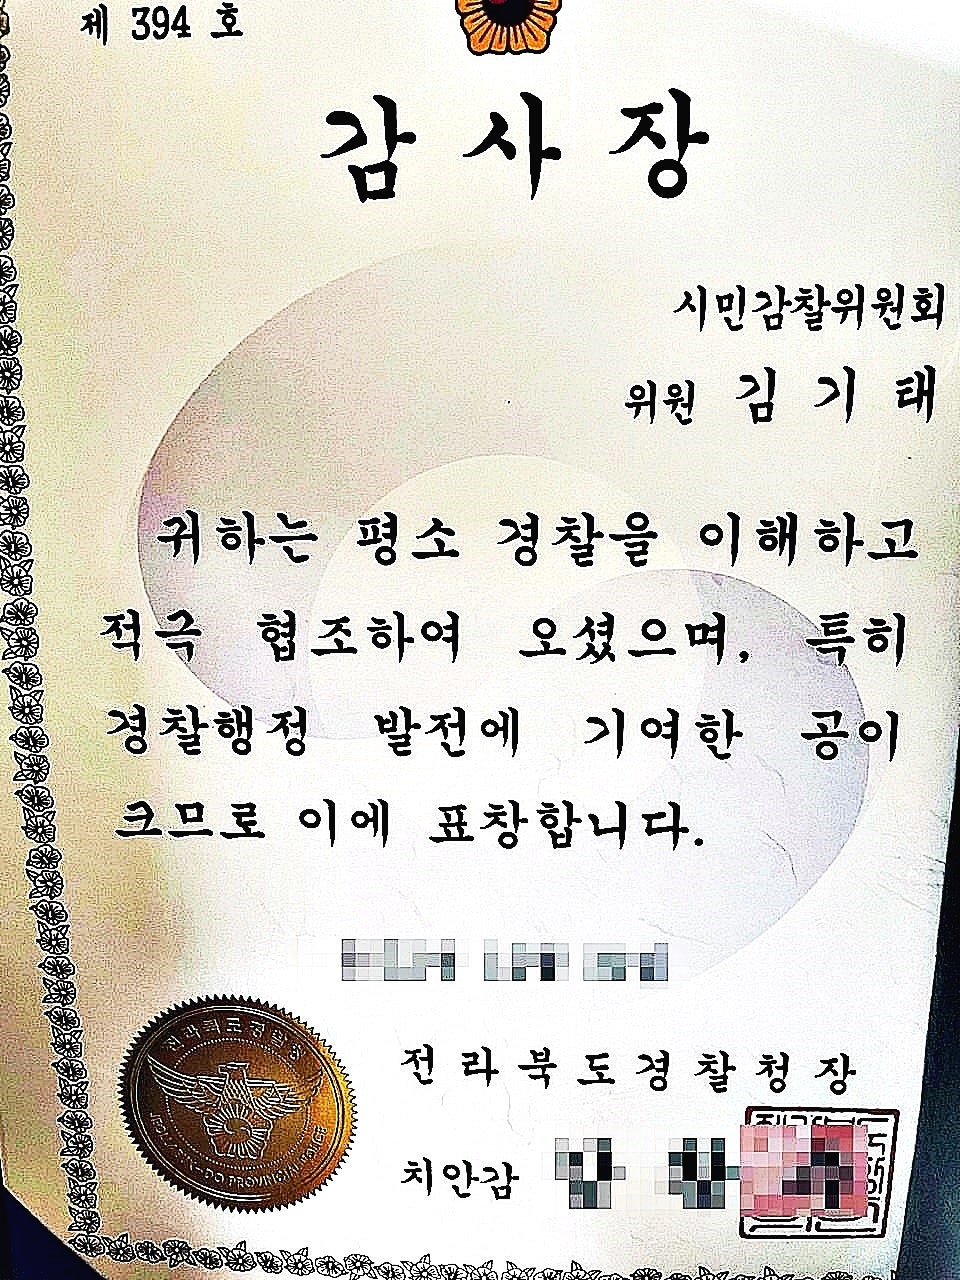 제 394 호
감 사 장
시민감찰위원회
위원 김 기 태
귀하는 평소 경찰을 이해하고
적극 협조하여 오셨으며, 특히
경찰행정 발전에 기여한 공이
크므로 이에 표창합니다.
전 라 북 도 경 찰 청 장
치안감